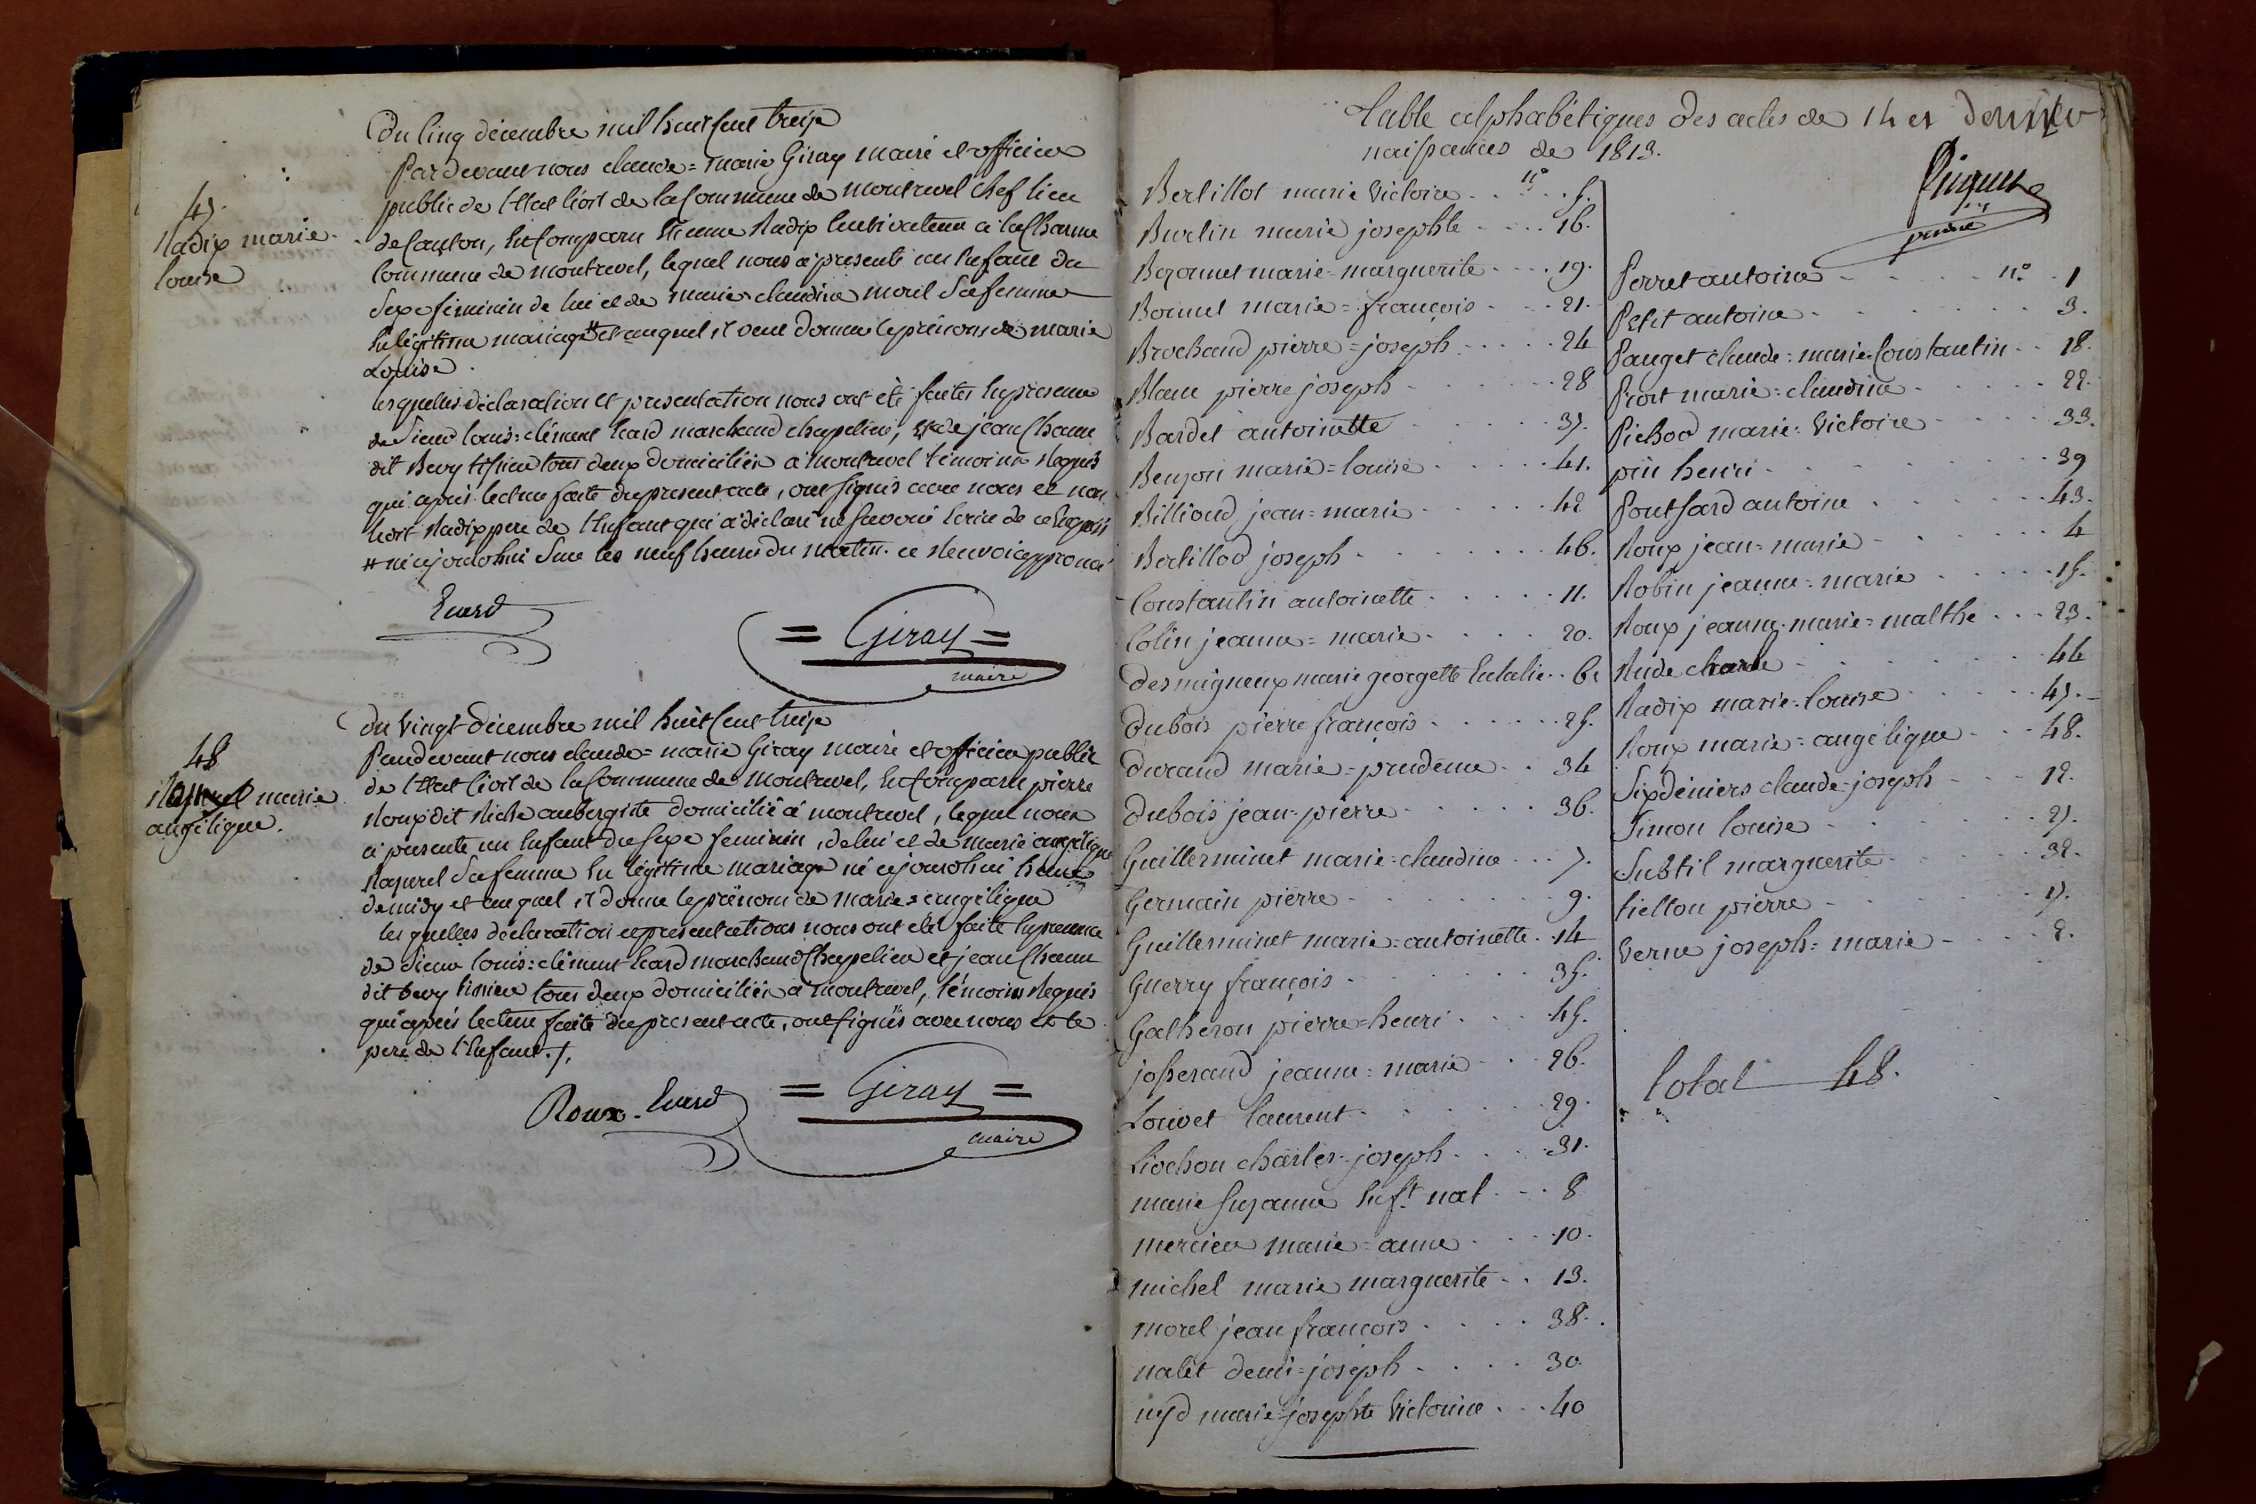 47.
Radix marie
louise
Du Cinq décembre mil huit Cent treize
Pardevant nous claude=marie Giray maire et officier
public de l'Etat Civil de la Commune de montrevel Chef lieu
de Canton, est Comparu Etienne Radix Cultivateur à la Charme
Commune de montrevel, lequel nous a presenté un Enfant du
Sexe feminin de lui et de marie claudine morel Sa femme
En légitime mariage # et auquel il veut donner le prénom de marie
Louise.
les quelles déclaration et presentation nous ont été faites En presence
de Sieur louis=clément Evard marchand chapelier, et de jean Chanu
dit Bevy tissier tous deux domiciliés à montrevel témoins Requis
qui après lecture faite du present acte, ont signés avec nous et non
ledit Radix pere de l'Enfant qui a déclaré ne savoir Ecrire de ce Enquis
# né cejourdhui Sur les neuf heures du matin. ce Renvoi approuvé
Evard
= Giray =
maire
48
marie
angélique.
Du Vingt décembre mil huit Cent treize
Pardevant nous claude=marie Giray maire et officier public
de l'Etat Civil de la Commune de montrevel, est Comparu pierre
Roux dit Riche aubergiste domicilié à montrevel, lequel nous
a presenté un Enfant du Sexe feminin, de lui et de marie angélique
Sa femme En légitime mariage né cejourdhui heure
de midy et auquel il donne le prénom de marie=angélique
les quelles déclaration et presentations nous ont été faite En presence
de Sieur louis=clément Evard marchand Chapelier et jean Chanu
dit bevy tissier tous deux domiciliés à montrevel, témoins Requis
qui après lecture faite du present acte, ont signés avec nous et le
pere de l'Enfant./.
Roux. Evard
= Giray =
maire
Table alphabétiques des actes de
naissances de 1813.
14 et dernier
Bertillot marie Victoire . . n° . . 5.
Burtin marie josephte . . . . 16.
Bezonnet marie=marguerite . . . . 19.
Bonnet marie=françois . . . . 21.
Brochand pierre=joseph . . . . . 24
Blanc pierre joseph . . . . . 28
Bardet antoinette . . . . . 37.
Benzon marie=louise . . . . . 41.
Billioud jean=marie . . . . . 42
Bertillod joseph . . . . . 46.
Constantin antoinette . . . . . 11.
Colin jeanne=marie . . . . . 20.
Desmigneux marie georgette Eulalie . . 6.
Dubois pierre françois . . . . . 25.
Durand marie=prudence . . 34
Dubois jean=pierre . . . . . 36.
Guillerminet marie=claudine . . . 7.
Germain pierre . . . . . 9.
Guillerminet marie=antoinette . 14
Guerry françois . . . . . 35.
Galheron pierre=henri . . . 45.
josserand jeanne=marie . . . 26.
Louvet laurent . . . . . 29.
Liochon charles=joseph . . . . 31.
marie suzanne Enft. nat . . . 8
mercier marie=anne . . . . 10.
michel marie marguerite . . 13.
morel jean françois . . . . 38.
nalet denis=joseph . . . . 30
marie=josephte Victorine . . . 40
Perret antoine . . . . . n° . 1
Petit antoine . . . . . 3.
Pauget claude=marie Constantin . . 18.
marie=claudine . . . . . 22.
Pichod marie=Victoire . . . . . 33.
pin henri . . . . . 39
Pontsard antoine . . . . . 43.
Roux jean=marie . . . . . 4
Robin jeanne=marie . . . . . 15.
Roux jeanne=marie=malthe . . . 23.
Rude charle . . . . . 44
Radix marie=louise . . . . . 47.
Roux marie=angelique . . . 48.
Sixdeniers claude=joseph . . . 12.
Simon louise . . . . . 27.
Subtil marguerite . . . . . 32.
tietton pierre . . . . . 17.
Verne joseph=marie . . . . 2.
total 48.